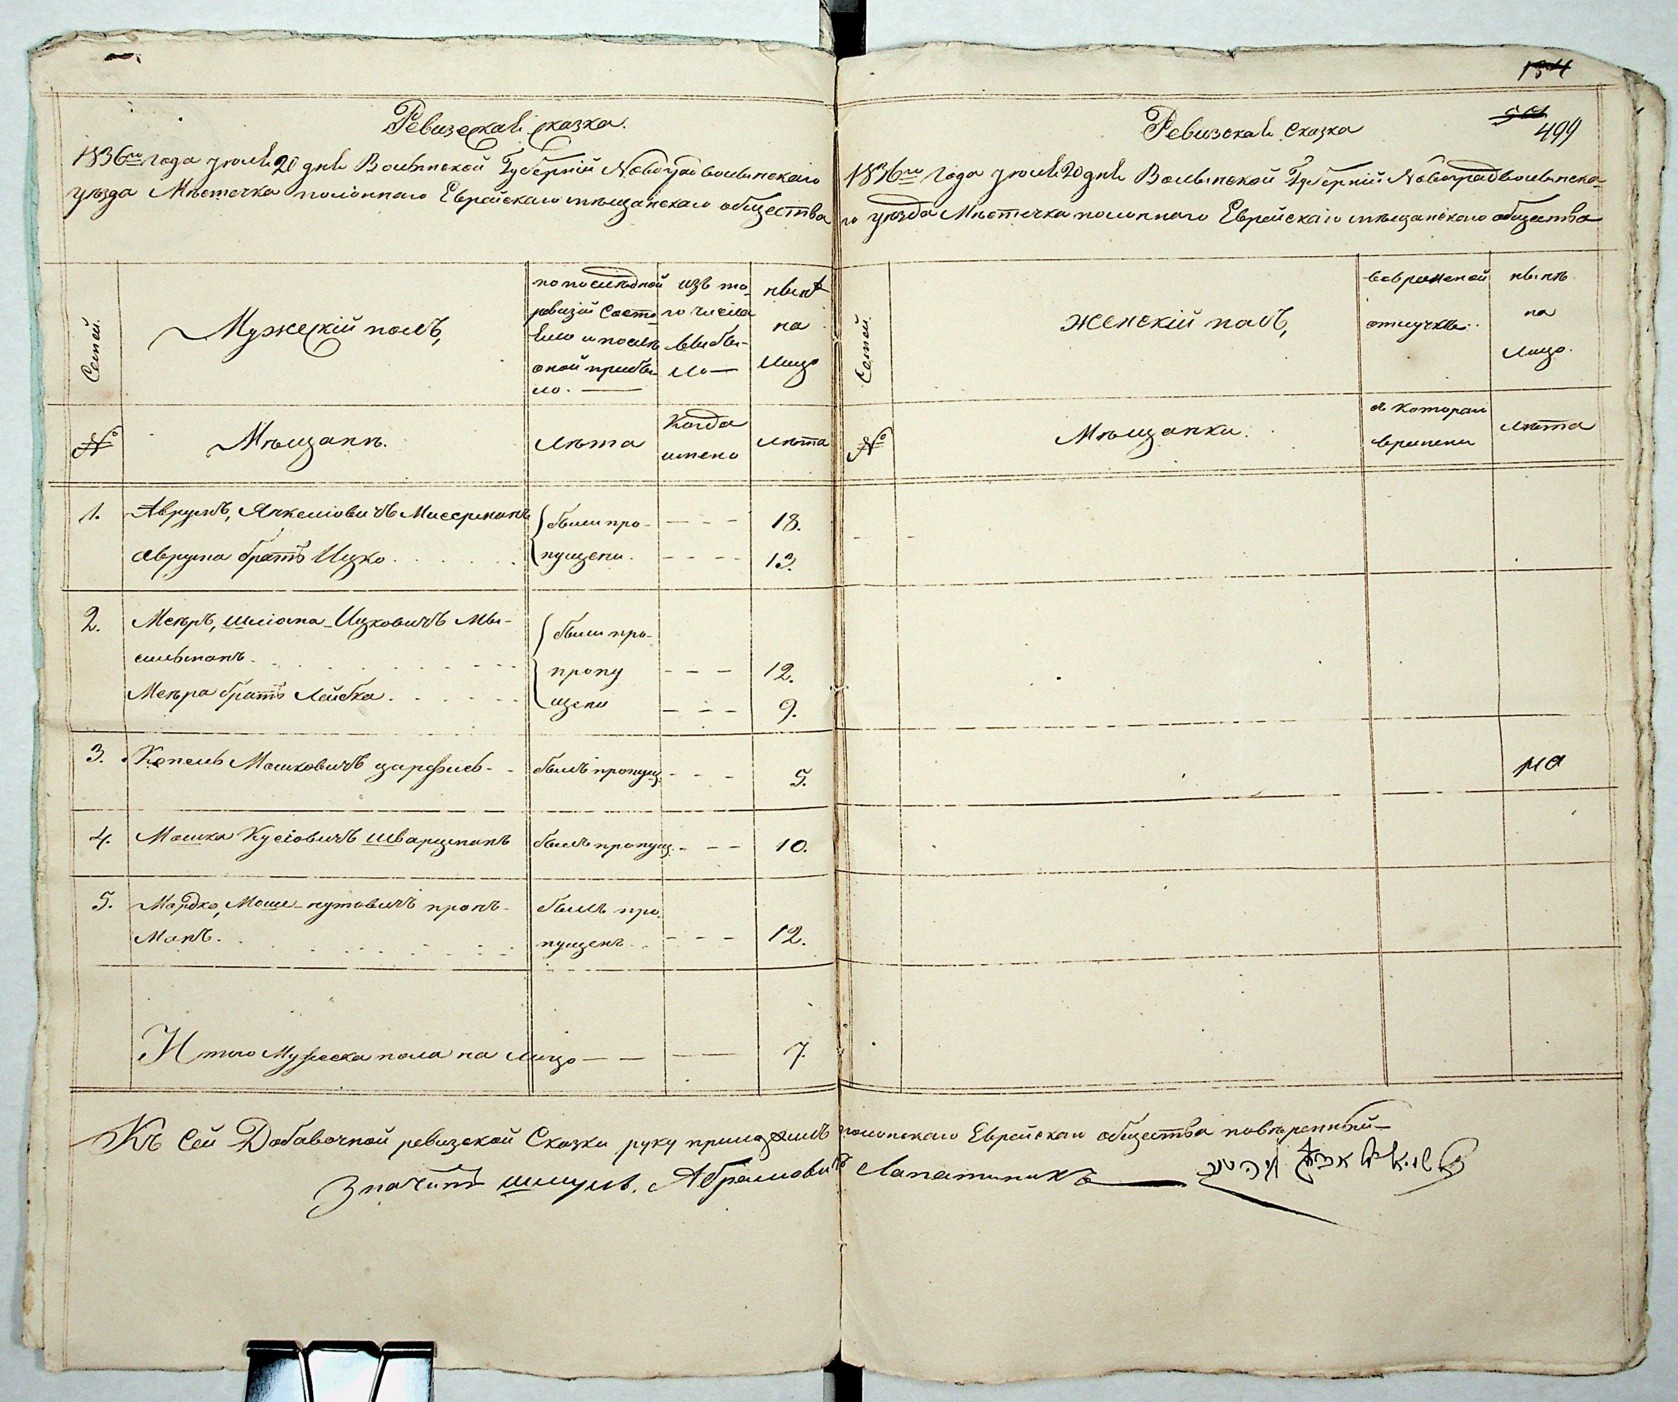 134
499
Ревизская сказка.
1836го года июля 20 дня Волынской Губерніи Новоградволынскаго
уезда Мѣстечка полоннаго Еврейскаго мѣщанскаго общества
Семей.
Мужескій полъ,
по последной
ревизіи состо
яло и послѣ
оной прибы-
ло.
изъ то-
го числа
выбы-
ло
нынѣ
на
лицо
№
Мѣщане.
лѣта
Когда
имено
лѣта
1. Аврумъ, Янкеліовичъ
были про- - - - 18.
Аврума братъ Ицко
пущени. - - - - 13.
2. Мееръ, шліома Ицковичъ
были про-
пропу - - - 12.
Меера братъ Лейбка
щени - - - 9.
3. Копель Мошковичъ
былъ пропущ. - - - 5.
4. Мошка Кусіовичъ шварцманъ
былъ пропущ. - - - 10.
5. Мордко, Моше
былъ про-
манъ.
пущенъ - - - 12.
Итого Мужеска пола на лицо — — 7.
Ревизская Сказка
1836го года июля 20 дня Волынской Губерніи Новоградволынска-
го уезда Мѣстечка полоннаго Еврейскаго мѣщанскаго общества
Семей.
Женскій полъ,
вовременой
отлучке.
нынѣ
на
лицо.
№
Мѣщанки.
съ котораго
времени
лѣта
Къ сей Добавочной ревизской Сказки руку приложилъ полонскаго Еврейскаго общества повѣренный
Значитъ шмуль Абрамовичъ